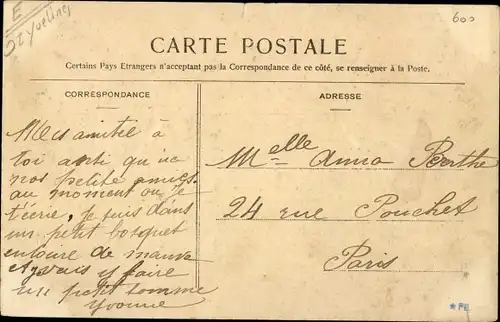 E
St Yvelines
600
CARTE POSTALE
Certains Pays Etrangers n'acceptent pas la Correspondance de ce côté, se renseigner à la Poste.
CORRESPONDANCE
ADRESSE
Mes amitié à
toi ansi qu'a
nos petite amies
au moment ou je
t'écrie, je suis dans
un petit bosquet
entoure de mauve
et vais y faire
un petit somme
Yvonne
Melle Anna Berthe
24 rue Pouchet
Paris
*PE